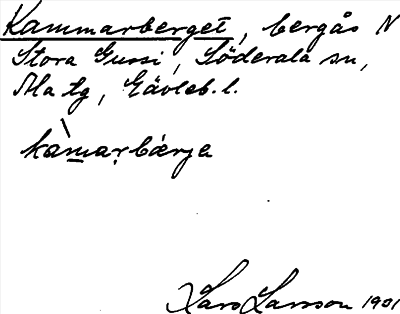 Kammarberget, bergås N
Stora Gussi, Söderala sn,
Ala tg, Gävleb. l.
kàmarbærja
Lars Larsson 1901